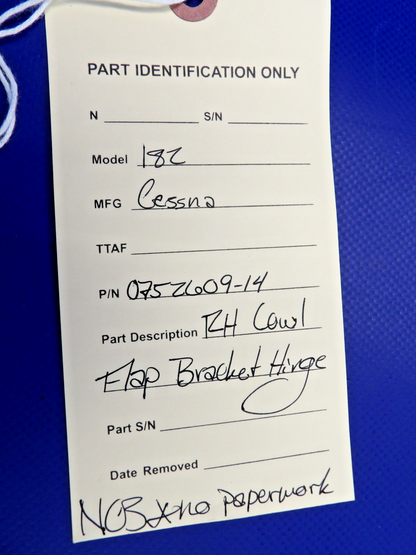 PART IDENTIFICATION ONLY
N S/N
Model 182
MFG Cessna
TTAF
P/N 0752609-14
Part Description RH Cowl
Flap Bracket Hinge
Part S/N
Date Removed
no paperwork